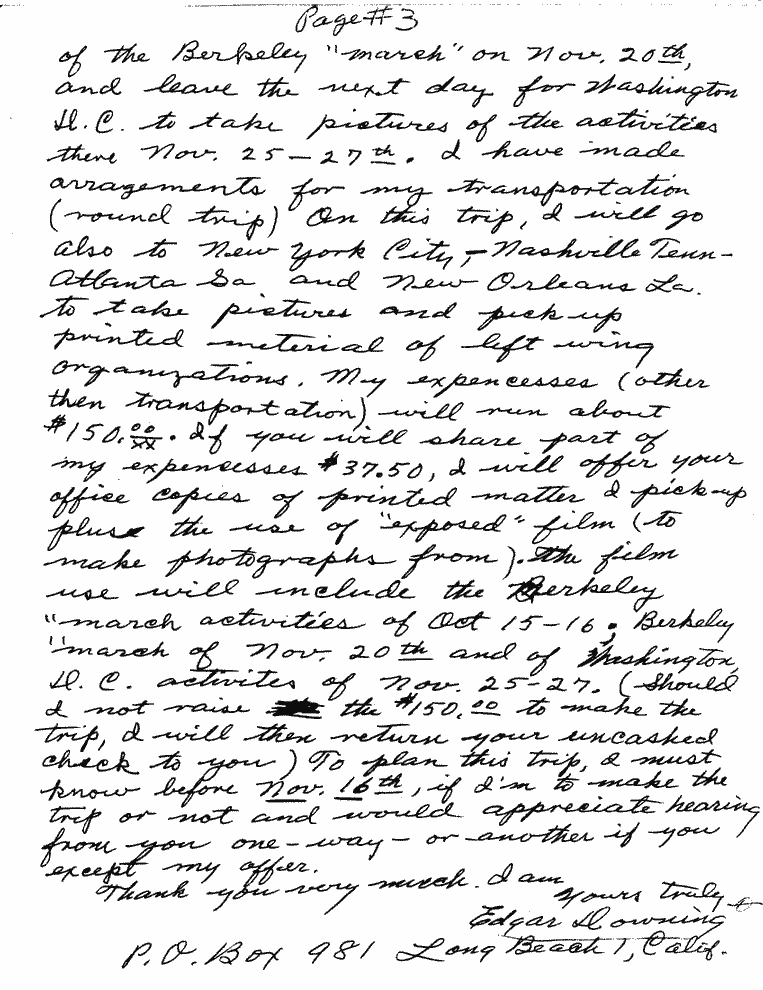 Page # 3
of the Berkeley "march" on Nov. 20th,
and leave the next day for Washington
D.C. to take pictures of the activities
there Nov. 25-27th. I have made
arragements for my transportation
(round trip) On this trip, I will go
also to New York City,-Nashville Tenn-
Atlanta Ga and New Orleans La.
to take pictures and pick-up
printed meterial of left wing
organizations. My expencesses (other
then transportation) will run about
$150.00/xx. If you will share part of
my expencesses $37.50, I will offer your
office copies of printed matter I pick-up
plus the use of "exposed" film (to
make photographs from). The film
use will include the Berkeley
"march activities of Oct 15-16; Berkeley
"march of Nov. 20th and of Washington,
D.C. activites of Nov. 25-27. (Should
I not raise the $150.00 to make the
trip, I will then return your uncashed
check to you) To plan this trip, I must
know before Nov. 16th, if I'm to make the
trip or not and would appreciate hearing
from you one-way-or-another if you
except my offer.
Thank you very much. I am
Yours truly
Edgar Downing
P.O. Box 981 Long Beach 1, Calif.